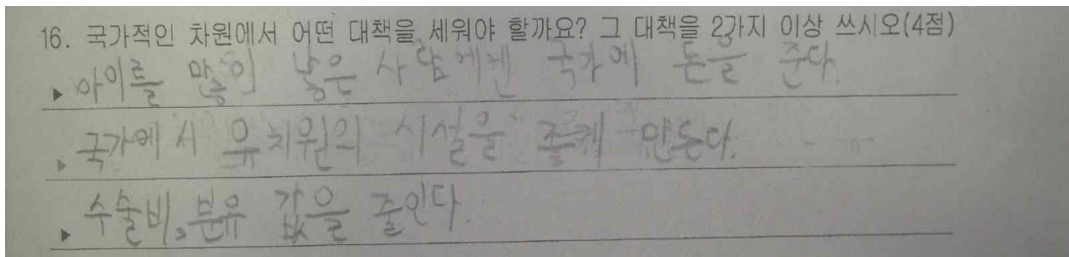 16. 국가적인 차원에서 어떤 대책을 세워야 할까요? 그 대책을 2가지 이상 쓰시오(4점)
▸ 아이를 많이 낳은 사람에겐 국가에 돈을 준다.
▸ 국가에서 유치원의 시설을 좋게 만든다.
▸ 수술비, 분유 값을 줄인다.